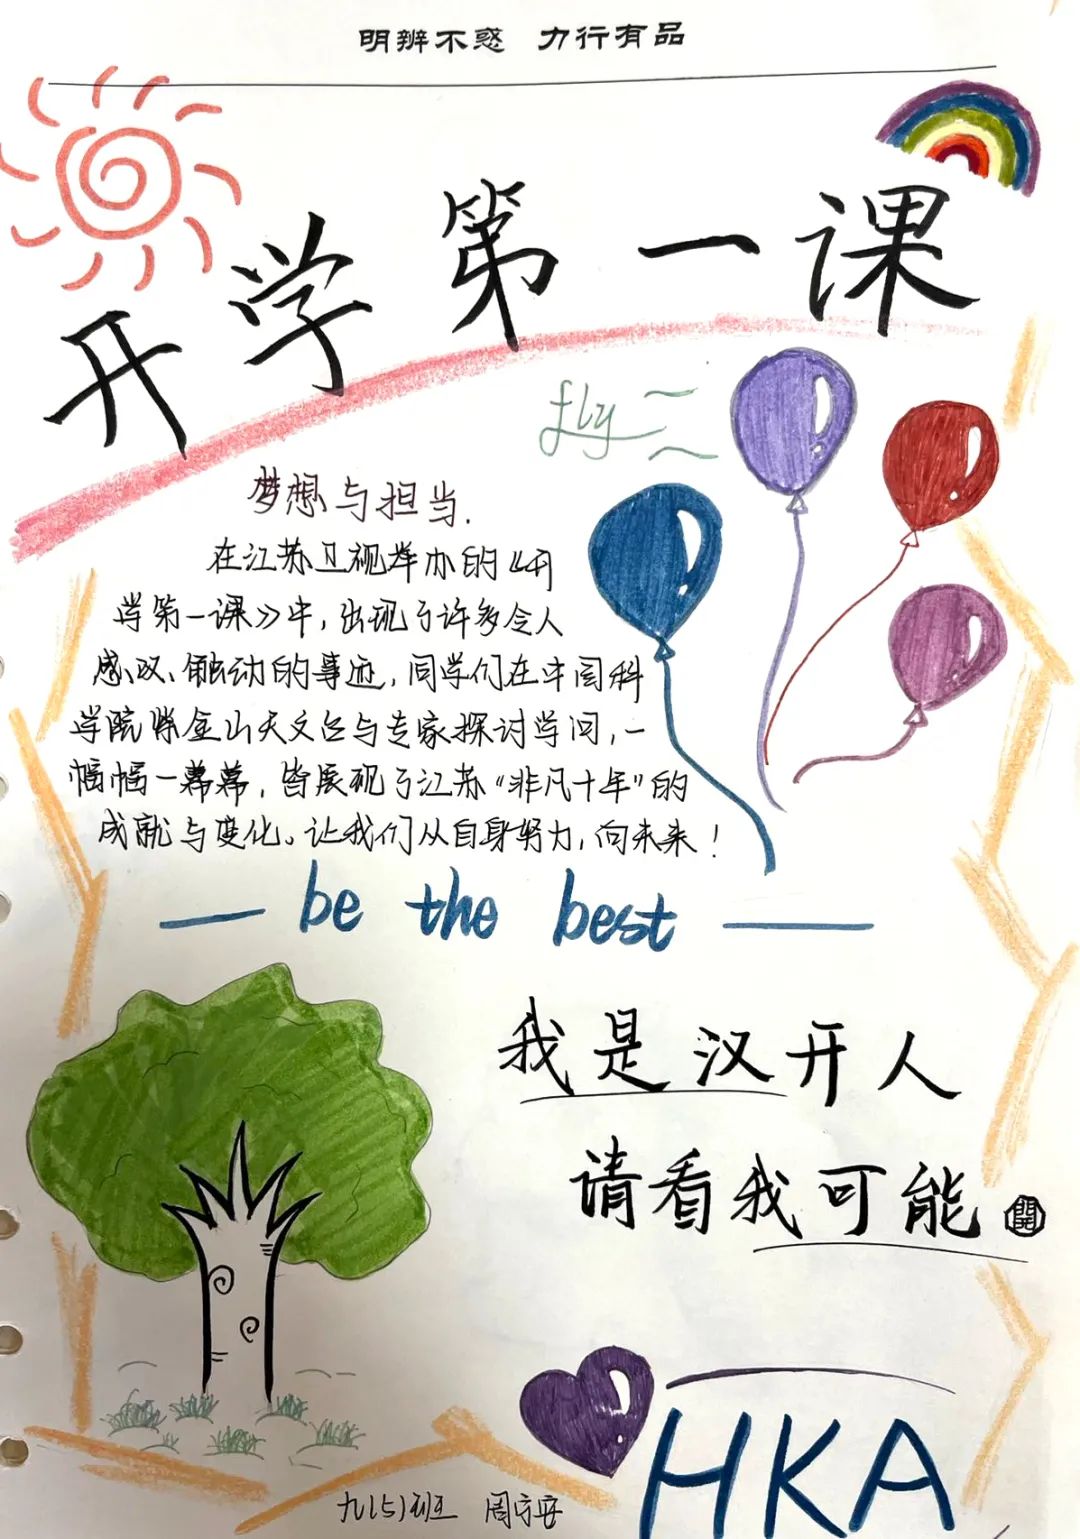 明辨不惑 力行有品
开学第一课
fly
梦想与担当.
在江苏卫视举办的《开
学第一课》中,出现了许多令人
感叹、触动的事迹,同学们在中国科
学院紫金山天文台与专家探讨学问,一
幅幅一幕幕,皆展现了江苏“非凡十年”的
成就与变化。让我们从自身努力,向未来!
be the best
我是汉开人
请看我可能
開
HKA
九(5)班 周宇安